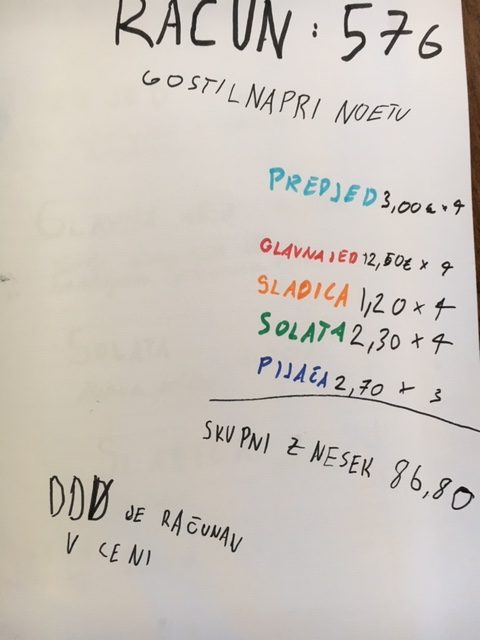 RAČUN: 576
GOSTILNAPRI NOETU
PREDJED 3,00€ × 4
GLAVNAJED 12,50€ × 4
SLADICA 1,20 × 4
SOLATA 2,30 × 4
PIJAČA 2,70 × 3
SKUPNI ZNESEK 86,80
DDV JE RAČUNAV
V CENI